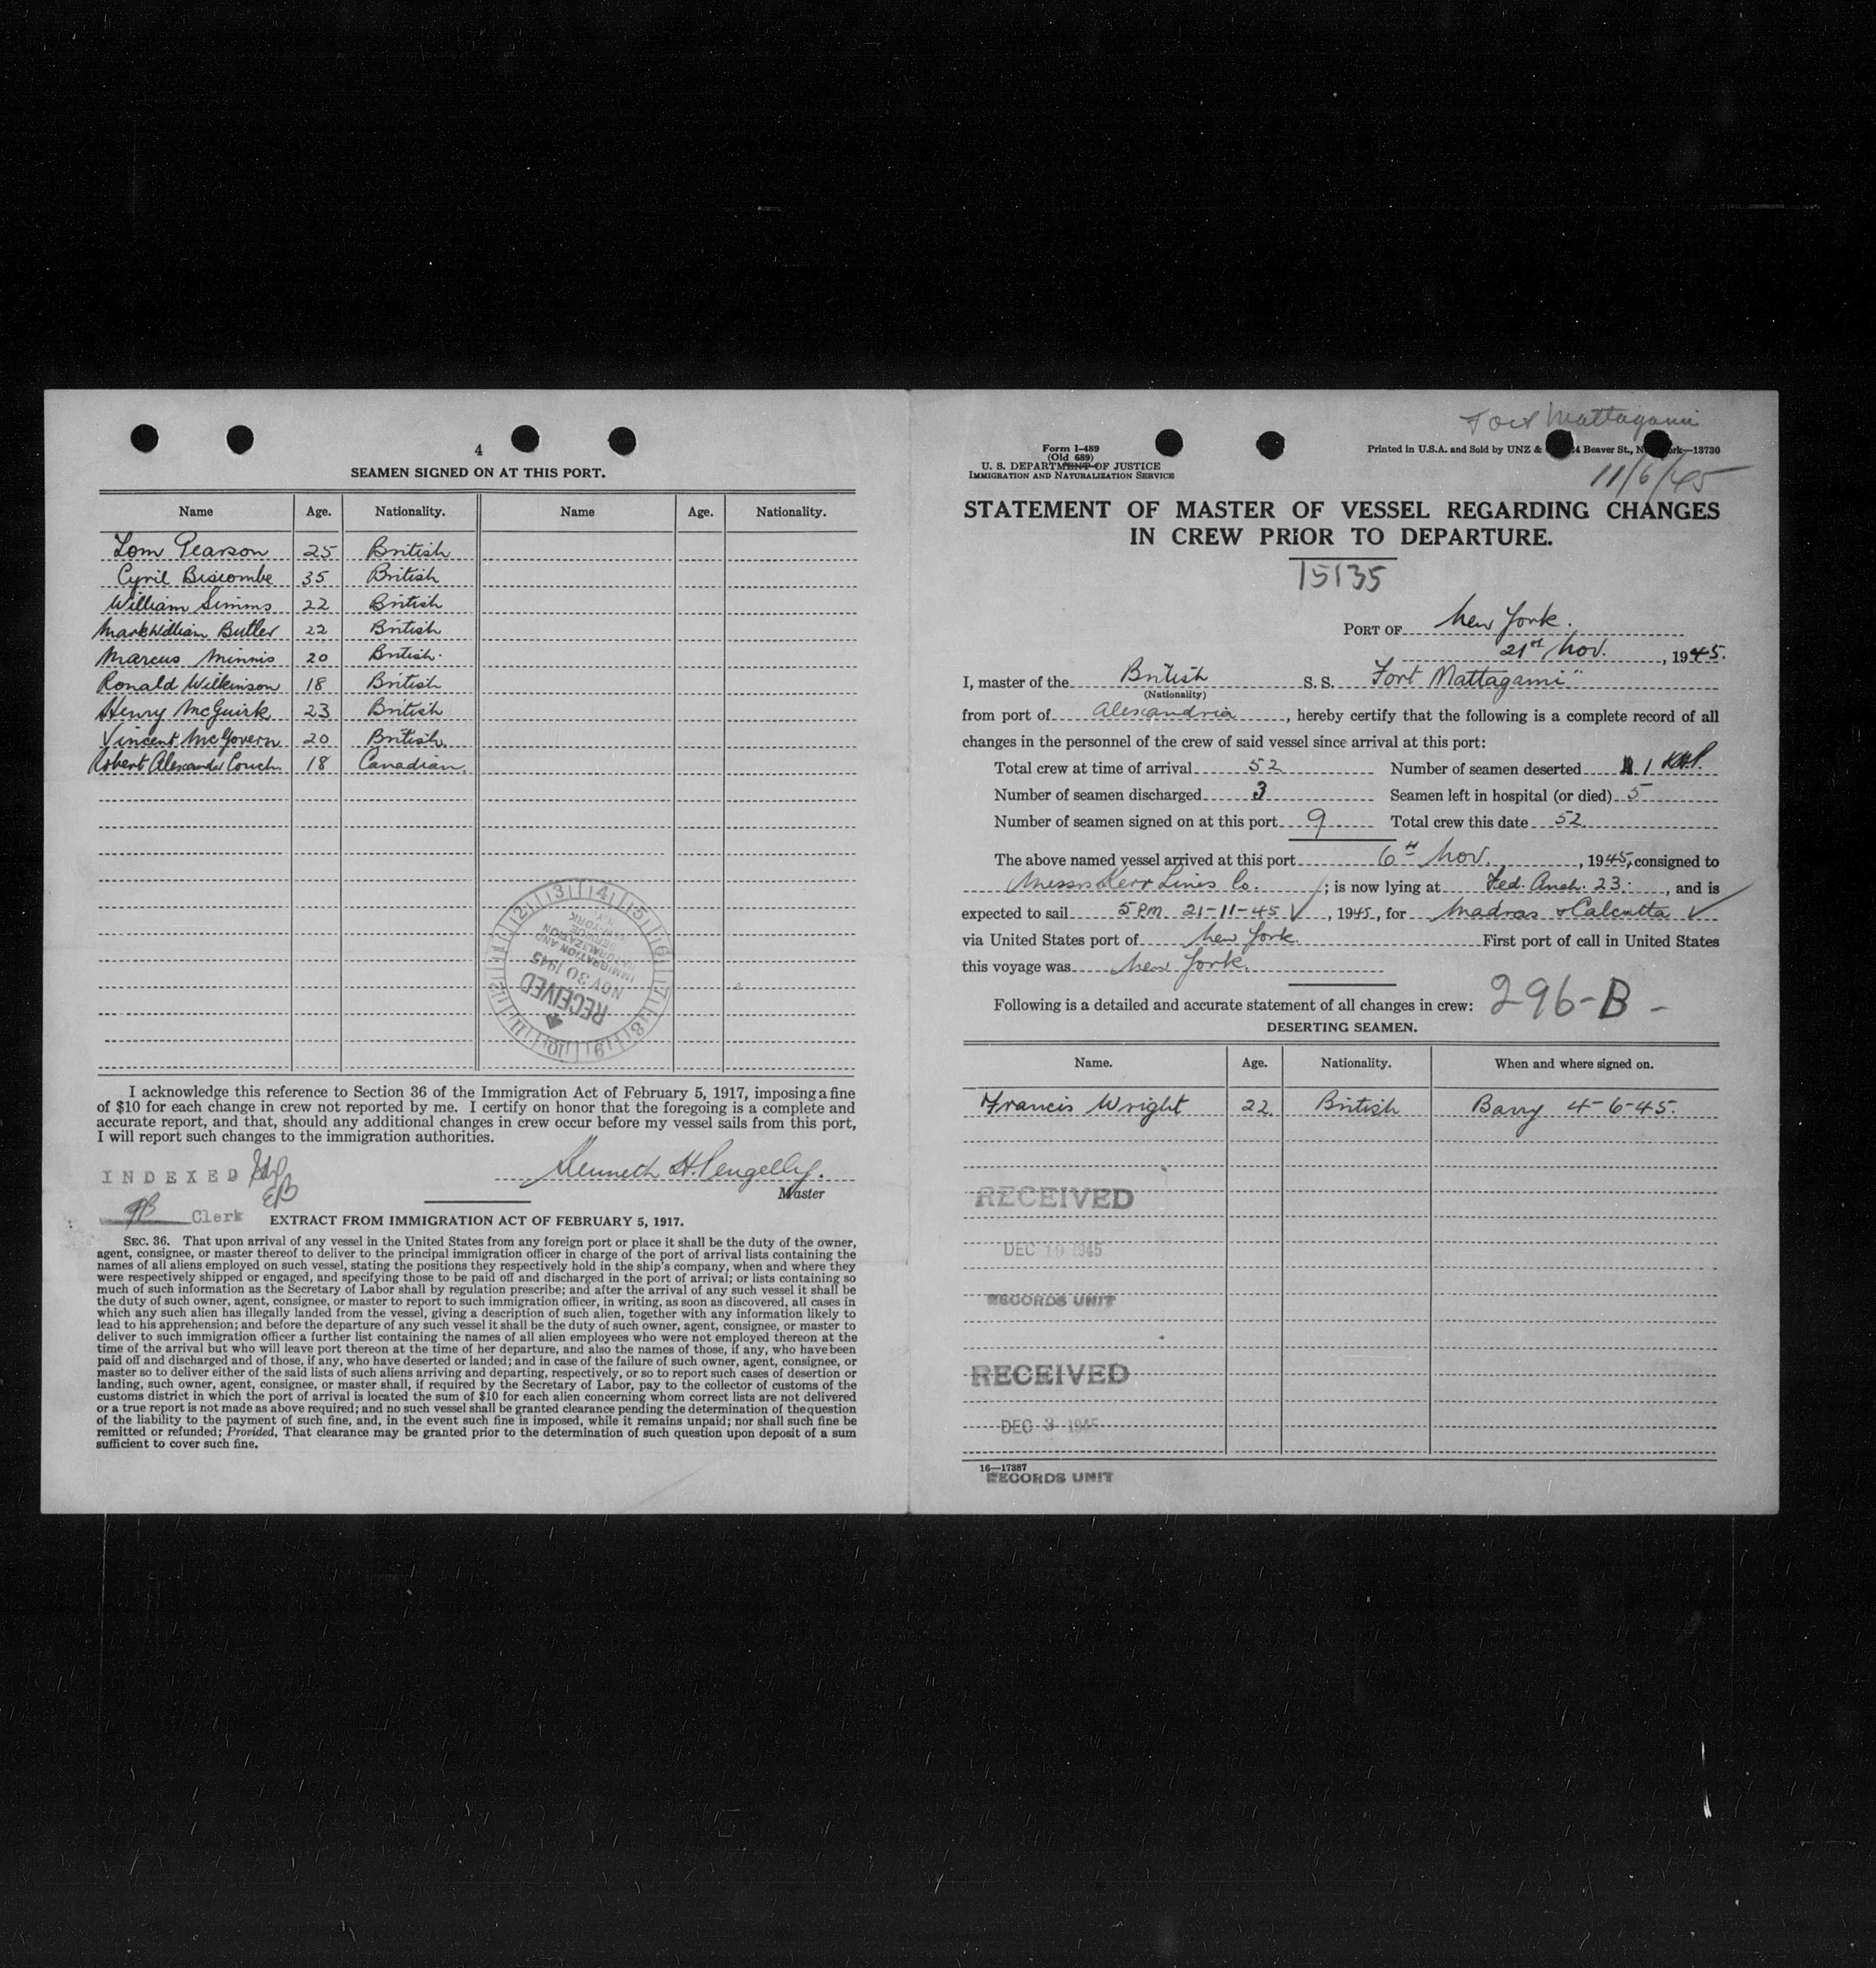 4
SEAMEN SIGNED ON AT THIS PORT.
Name Age. Nationality. Name Age. Nationality.
Tom Pearson 25 British
Cyril Biscombe 35 British
William Simms 22 British
Mark William Butler 22 British
Marcus Minnis 20 British.
Ronald Wilkinson 18 British
Henry McGuirk 23 British
Vincent McGovern 20 British.
Robert Alexander Couch 18 Canadian.
1 2 3 4 5 6 7 8 9 10 11 12
IMMIGRATION AND NATURALIZATION SERVICE
NEW YORK N.Y.
NOV 30 1945
RECEIVED
I acknowledge this reference to Section 36 of the Immigration Act of February 5, 1917, imposing a fine
of $10 for each change in crew not reported by me. I certify on honor that the foregoing is a complete and
accurate report, and that, should any additional changes in crew occur before my vessel sails from this port,
I will report such changes to the immigration authorities.
INDEXED
Kenneth H. Pengelly.
Master
Clerk
EXTRACT FROM IMMIGRATION ACT OF FEBRUARY 5, 1917.
SEC. 36. That upon arrival of any vessel in the United States from any foreign port or place it shall be the duty of the owner,
agent, consignee, or master thereof to deliver to the principal immigration officer in charge of the port of arrival lists containing the
names of all aliens employed on such vessel, stating the positions they respectively hold in the ship's company, when and where they
were respectively shipped or engaged, and specifying those to be paid off and discharged in the port of arrival; or lists containing so
much of such information as the Secretary of Labor shall by regulation prescribe; and after the arrival of any such vessel it shall be
the duty of such owner, agent, consignee, or master to report to such immigration officer, in writing, as soon as discovered, all cases in
which any such alien has illegally landed from the vessel, giving a description of such alien, together with any information likely to
lead to his apprehension; and before the departure of any such vessel it shall be the duty of such owner, agent, consignee, or master to
deliver to such immigration officer a further list containing the names of all alien employees who were not employed thereon at the
time of the arrival but who will leave port thereon at the time of her departure, and also the names of those, if any, who have been
paid off and discharged and of those, if any, who have deserted or landed; and in case of the failure of such owner, agent, consignee, or
master so to deliver either of the said lists of such aliens arriving and departing, respectively, or so to report such cases of desertion or
landing, such owner, agent, consignee, or master shall, if required by the Secretary of Labor, pay to the collector of customs of the
customs district in which the port of arrival is located the sum of $10 for each alien concerning whom correct lists are not delivered
or a true report is not made as above required; and no such vessel shall be granted clearance pending the determination of the question
of the liability to the payment of such fine, and, in the event such fine is imposed, while it remains unpaid; nor shall such fine be
remitted or refunded; Provided, That clearance may be granted prior to the determination of such question upon deposit of a sum
sufficient to cover such fine.
Fort Mattagami
Form I-489
(Old 689)
U. S. DEPARTMENT OF JUSTICE
IMMIGRATION AND NATURALIZATION SERVICE
Printed in U.S.A. and Sold by UNZ & Beaver St., 13730
11/6/45
STATEMENT OF MASTER OF VESSEL REGARDING CHANGES
IN CREW PRIOR TO DEPARTURE.
15135
PORT OF New York.
21st Nov., 1945.
I, master of the British S. S. Fort Mattagami"
(Nationality)
from port of Alexandria, hereby certify that the following is a complete record of all
changes in the personnel of the crew of said vessel since arrival at this port:
Total crew at time of arrival 52 Number of seamen deserted 1 KHP.
Number of seamen discharged 3 Seamen left in hospital (or died) 5
Number of seamen signed on at this port 9 Total crew this date 52
The above named vessel arrived at this port 6th Nov., 1945, consigned to
Messrs Kerr Lines Co.; is now lying at Fed. Anch. 23., and is
expected to sail 5 PM 21-11-45 ✓, 1945, for Madras & Calcutta ✓
via United States port of New York. First port of call in United States
this voyage was New York.
Following is a detailed and accurate statement of all changes in crew: 296-B -
DESERTING SEAMEN.
Name. Age. Nationality. When and where signed on.
Francis Wright 22 British Barry 4-6-45.
RECEIVED
DEC 19 1945
RECORDS UNIT
RECEIVED
DEC 3 1945
16—17387
RECORDS UNIT